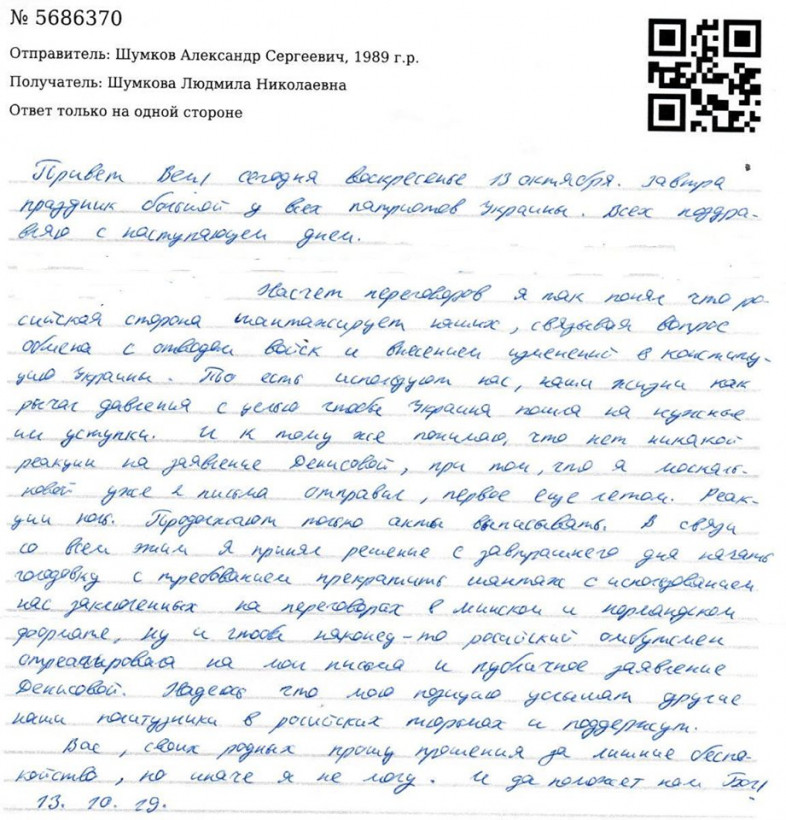 № 5686370
Отправитель: Шумков Александр Сергеевич, 1989 г.р.
Получатель: Шумкова Людмила Николаевна
Ответ только на одной стороне
Привет Вем, сегодня воскресенье 13 октября. завтра
праздник большой у всех патриотов Украины. Всех поздра-
вляю с наступающем днем.
Насчет переговоров я так понял что ро-
сийская сторона шантажирует наших, связывая вопрос
обмена с отводом войск и внесением изменений в конститу-
цию Украины. То есть используют нас, наши жизни как
рычаг давления с целью чтобы Украина пошла на нужные
им уступки. И к тому же понимаю, что нет никакой
реакции на заявление Денисовой, при том, что я москаль-
ковой уже 2 письма отправил, первое еще летом. Реак-
ции ноль. Продолжают только акты выписывать. В связи
со всем этим я принял решение с завтрашнего дня начать
голодовку с требованием прекратить шантаж с использованием
нас заключенных на переговорах в минском и нормандском
формате, ну и чтобы наконец-то росийский омбутсмен
отреагировала на мои письма и публичное заявление
Денисовой. Надеюсь что мою позицию услышат другие
наши политузники в росийских тюрьмах и поддержут.
Вас, своих родных прошу прощения за лишние беспо-
койство, но иначе я не могу. И да поможет нам Бог!
13. 10. 19.